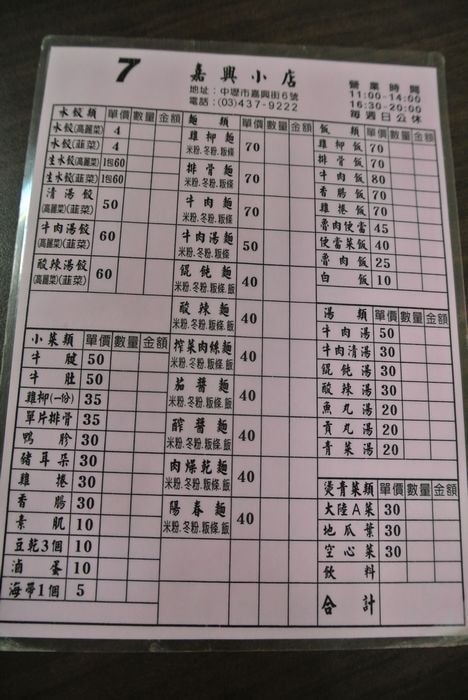 7
嘉興小店
地址：中壢市嘉興街6號
電話：(03)437-9222
營業時間
11:00-14:00
16:30-20:00
每週日公休
水餃類 單價 數量 金額
水餃(高麗菜) 4
水餃(韮菜) 4
生水餃(高麗菜) 1包60
生水餃(韮菜) 1包60
清湯餃
(高麗菜)(韮菜) 50
牛肉湯餃
(高麗菜)(韮菜) 60
酸辣湯餃
(高麗菜)(韮菜) 60
小菜類 單價 數量 金額
牛腱 50
牛肚 50
雞柳(一份) 35
單片排骨 35
鴨胗 30
豬耳朵 30
雞捲 30
香腸 30
素肌 10
豆乾3個 10
滷蛋 10
海帶1個 5
麵類 單價 數量 金額
雞柳麵
米粉.冬粉.粄條 70
排骨麵
米粉.冬粉.粄條 70
牛肉麵
米粉.冬粉.粄條 70
牛肉湯麵
米粉.冬粉.粄條 50
餛飩麵
米粉.冬粉.粄條.飯 40
酸辣麵
米粉.冬粉.粄條.飯 40
榨菜肉絲麵
米粉.冬粉.粄條.飯 40
茄醬麵
米粉.冬粉.粄條.飯 40
醡醬麵
米粉.冬粉.粄條.飯 40
肉燥乾麵
米粉.冬粉.粄條.飯 40
陽春麵
米粉.冬粉.粄條.飯 40
飯類 單價 數量 金額
雞柳飯 70
排骨飯 70
牛肉飯 80
香腸飯 70
雞捲飯 70
魯肉便當 45
便當菜飯 40
魯肉飯 25
白飯 10
湯類 單價 數量 金額
牛肉湯 50
牛肉清湯 30
餛飩湯 30
酸辣湯 30
魚丸湯 20
貢丸湯 20
青菜湯 20
燙青菜類 單價 數量 金額
大陸A菜 30
地瓜葉 30
空心菜 30
飲料
合計